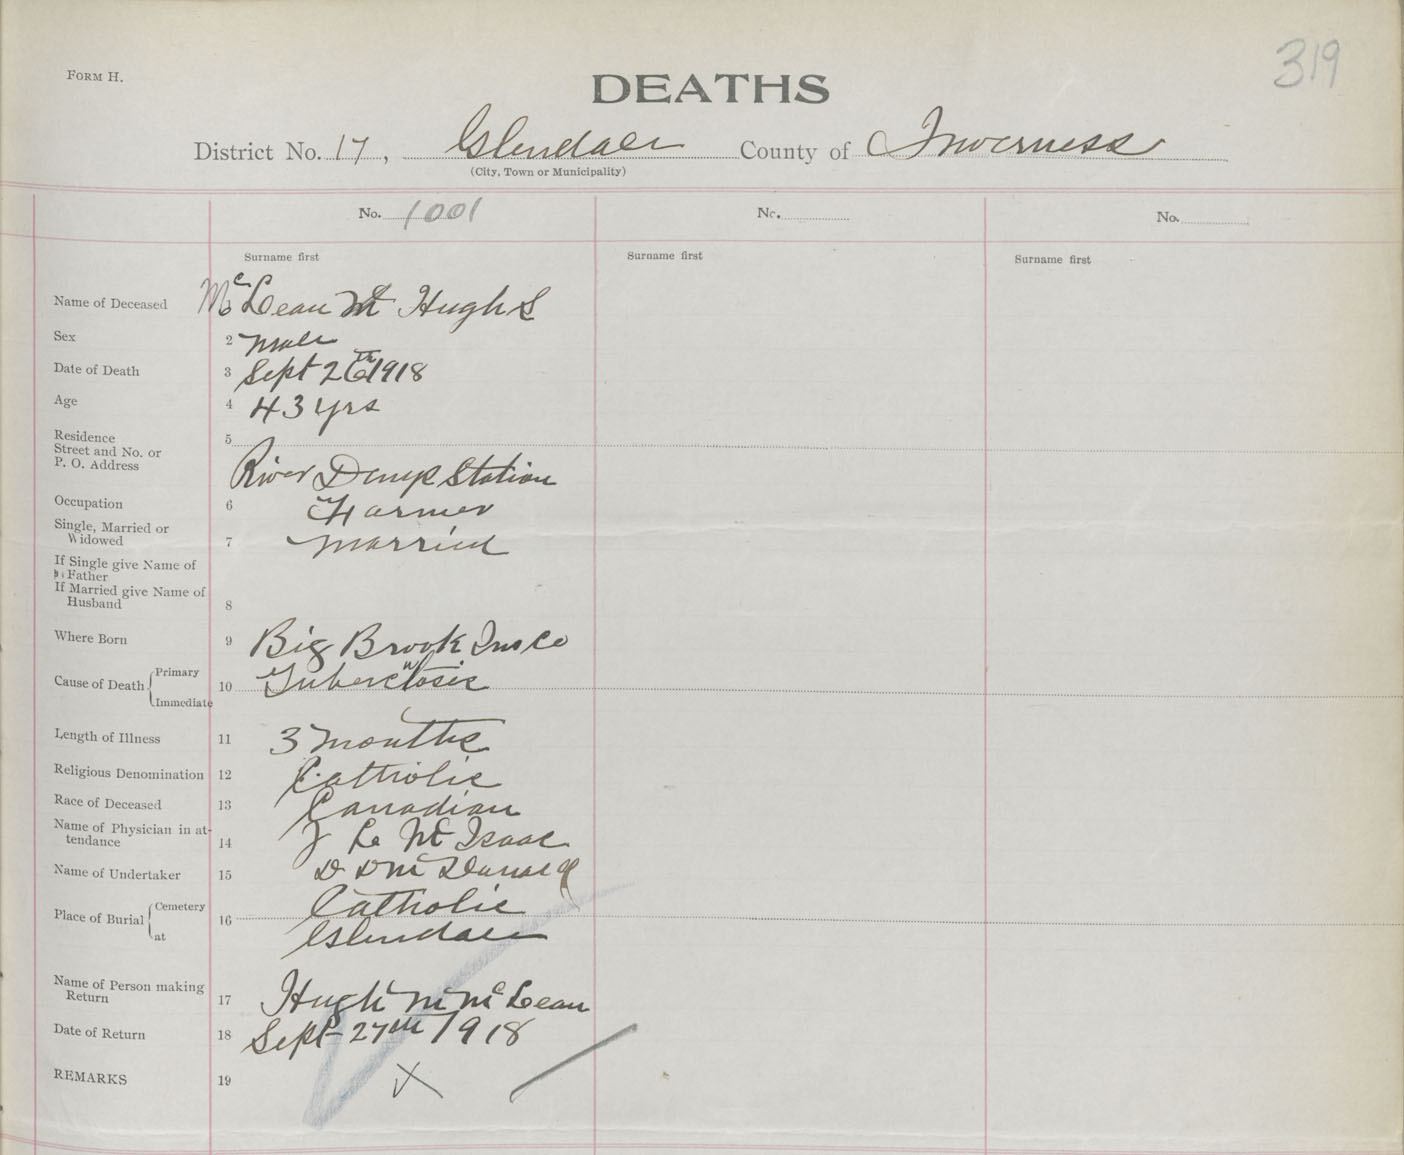 319
FORM H.
DEATHS
District No. 17, Glendale County of Inverness
(City, Town or Municipality)
No. 1001 No. No.
Surname first Surname first Surname first
Name of Deceased McLean Hugh S
Sex 2 Male
Date of Death 3 Sept 26th 1918
Age 4 43 yrs
Residence 5
Street and No. or
P. O. Address
River Denys Station
Occupation 6 Farmer
Single, Married or
Widowed 7 Married
If Single give Name of
Father
If Married give Name of
Husband 8
Where Born 9 Big Brook Inv Co
Cause of Death Primary
10 Tuberculosis
Immediate
Length of Illness 11 3 months
Religious Denomination 12 Catholic
Race of Deceased 13 Canadian
Name of Physician in at-
tendance 14 J Le McIsaac
Name of Undertaker 15 D D McDonald
Place of Burial Cemetery Catholic
16
at Glendale
Name of Person making
Return 17 Hugh M McLean
Date of Return 18 Sept 27th 1918
REMARKS 19 X